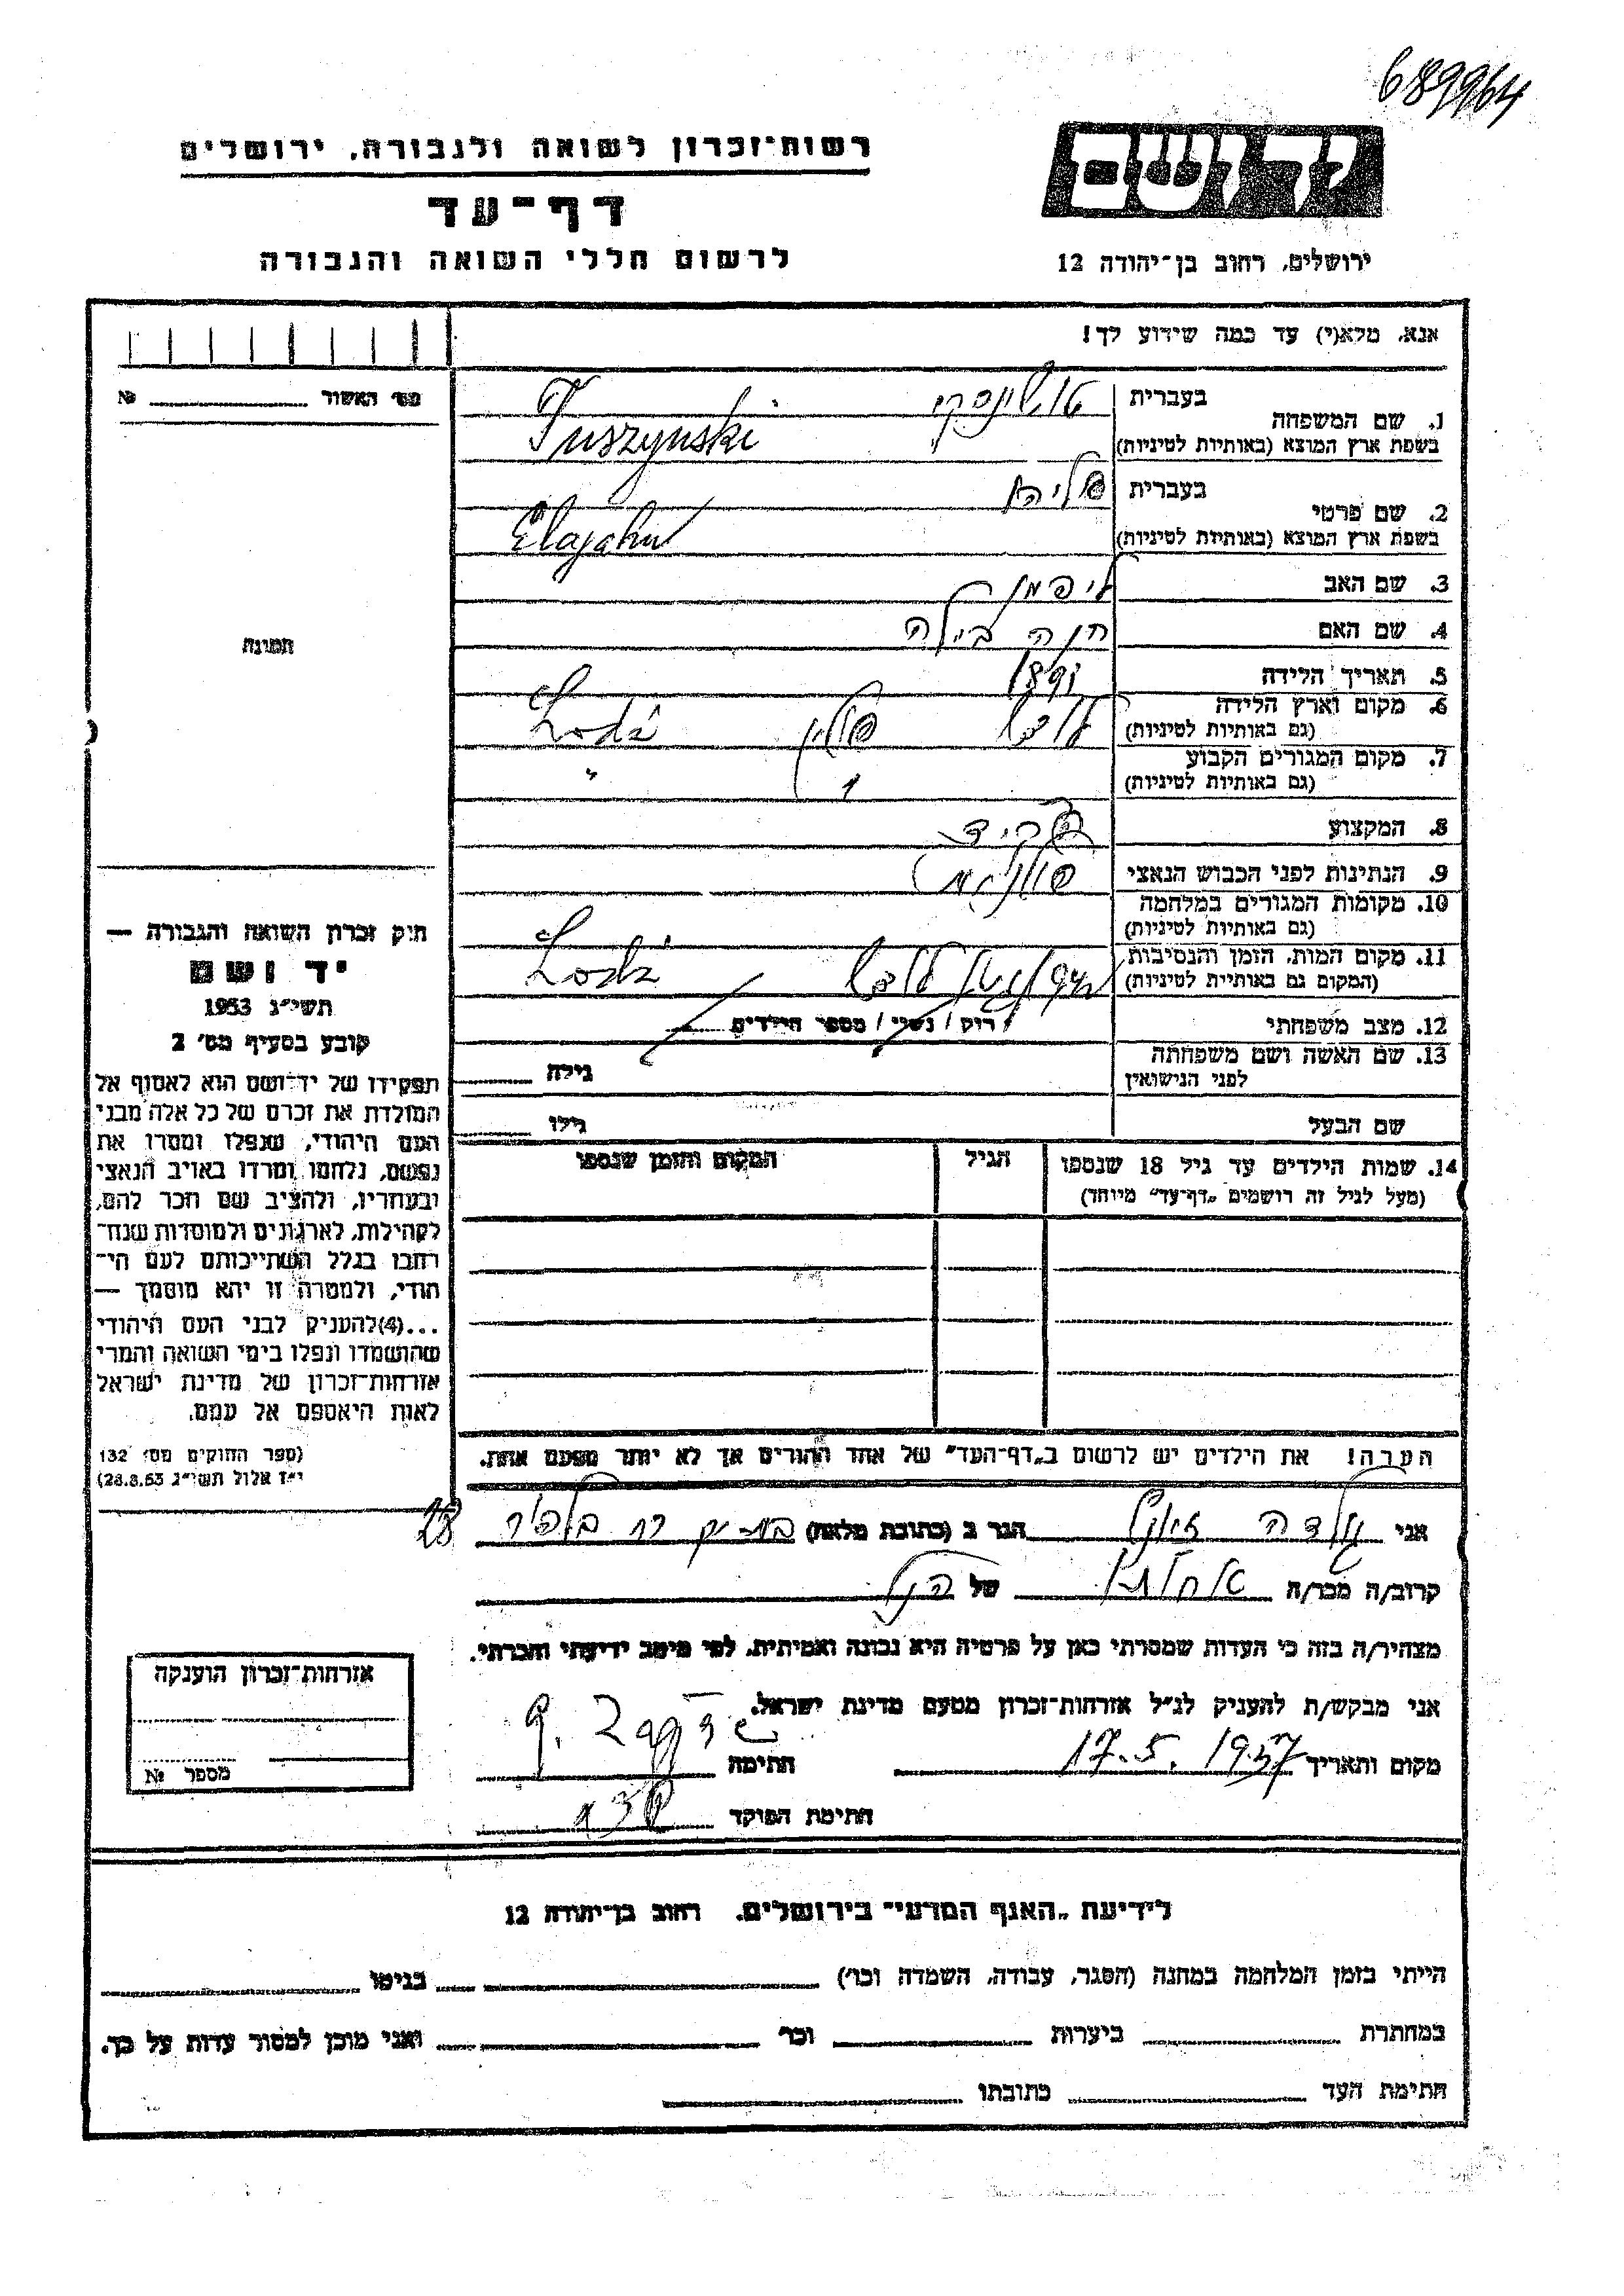 689964
רשות־זכרון לשואה ולגבורה, ירושלים
דף־עד
לרשום חללי השואה והגבורה
ידושם
ירושלים, רחוב בן־יהודה 12
אנא, מלא(י) עד כמה שידוע לך!
מס׳ האשור № 
1. שם המשפחה
בעברית טושינסקי
בשפת ארץ המוצא (באותיות לטיניות) Tuszynski
2. שם פרטי
בעברית
בשפת ארץ המוצא (באותיות לטיניות) Elajahu
3. שם האב ליפמן
4. שם האם חנה ביילה
5. תאריך הלידה 1897
6. מקום וארץ הלידה
(גם באותיות לטיניות) לודז׳ פולין Lodź
7. מקום המגורים הקבוע
(גם באותיות לטיניות) " "
8. המקצוע פקיד
9. הנתינות לפני הכבוש הנאצי פולנית
10. מקומות המגורים במלחמה
(גם באותיות לטיניות)
11. מקום המות, הזמן והנסיבות
(המקום גם באותיות לטיניות) לודז׳ Lodź
12. מצב משפחתי רוק / נשוי / מספר הילדים
13. שם האשה ושם משפחתה
לפני הנישואין
גילה
שם הבעל גילו
14. שמות הילדים עד גיל 18 שנספו
(מעל לגיל זה רושמים „דף־עד” מיוחד)
הגיל
המקום והזמן שנספו
הערה! את הילדים יש לרשום ב„דף־העד” של אחד ההורים אך לא יותר מפעם אחת.
תמונה
חוק זכרון השואה והגבורה —
יד ושם
תשי״ג 1953
קובע בסעיף מס׳ 2
תפקידו של יד־ושם הוא לאסוף אל
המולדת את זכרם של כל אלה מבני
העם היהודי, שנפלו ומסרו את
נפשם, נלחמו ומרדו באויב הנאצי
ובעוזריו, ולהציב שם וזכר להם,
לקהילות, לארגונים ולמוסדות שנח־
רבו בגלל השתייכותם לעם הי־
הודי, ולמטרה זו יהא מוסמך —
...(4) להעניק לבני העם היהודי
שהושמדו ונפלו בימי השואה והמרי
אזרחות־זכרון של מדינת ישראל
לאות היאספם אל עמם.
(ספר החוקים מס׳ 132
י״ז אלול תשי״ג 28.8.53)
אני גולדה הגר ב (כתובת מלאה) 28
קרוב/ה מכר/ה אחותו של הנ״ל
מצהיר/ה בזה כי העדות שמסרתי כאן על פרטיה היא נכונה ואמיתית, לפי מיטב ידיעתי והכרתי.
אני מבקש/ת להעניק לנ״ל אזרחות־זכרון מטעם מדינת ישראל.
מקום ותאריך 17.5.1957 חתימה
חתימת הפוקד
אזרחות־זכרון הוענקה
מספר №
לידיעת „האגף המדעי” בירושלים, רחוב בן־יהודה 12
הייתי בזמן המלחמה במחנה (הסגר, עבודה, השמדה וכו׳) בגיטו
במחתרת ביערות וכו׳ ואני מוכן למסור עדות על כך.
חתימת העד כתובתו